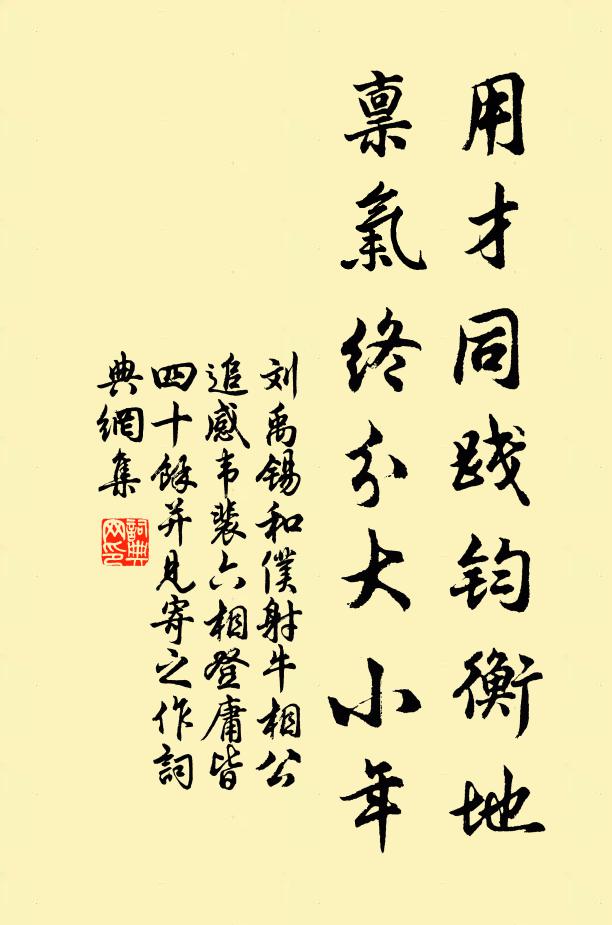 用才同践钧衡地
禀氣终分大小年
刘禹锡和僕射牛相公
追感韦裴六相登庸皆
四十馀并见寄之作詞
典網集
詞典
网印